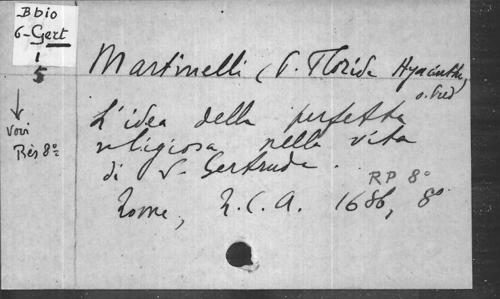 Bbio
6-Gert
1
5
Voir
Rés 8º
Martinelli (P. Floride Hyacinthe,
o. Pred
L'idea della perfetta
religiosa, nella vita
di S. Gertrude.
RP 8º
Rome, R.C.A. 1686, 8º